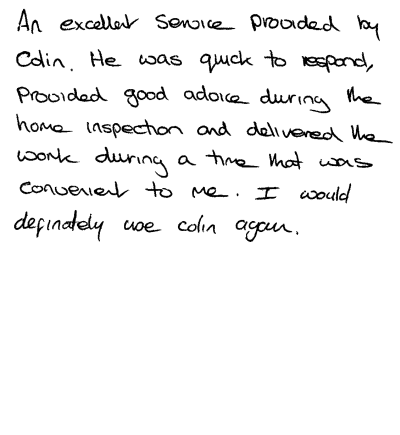 An excellent service provided by
Colin. He was quick to respond,
provided good advice during the
home inspection and delivered the
work during a time that was
convenient to me. I would
definately use colin again.